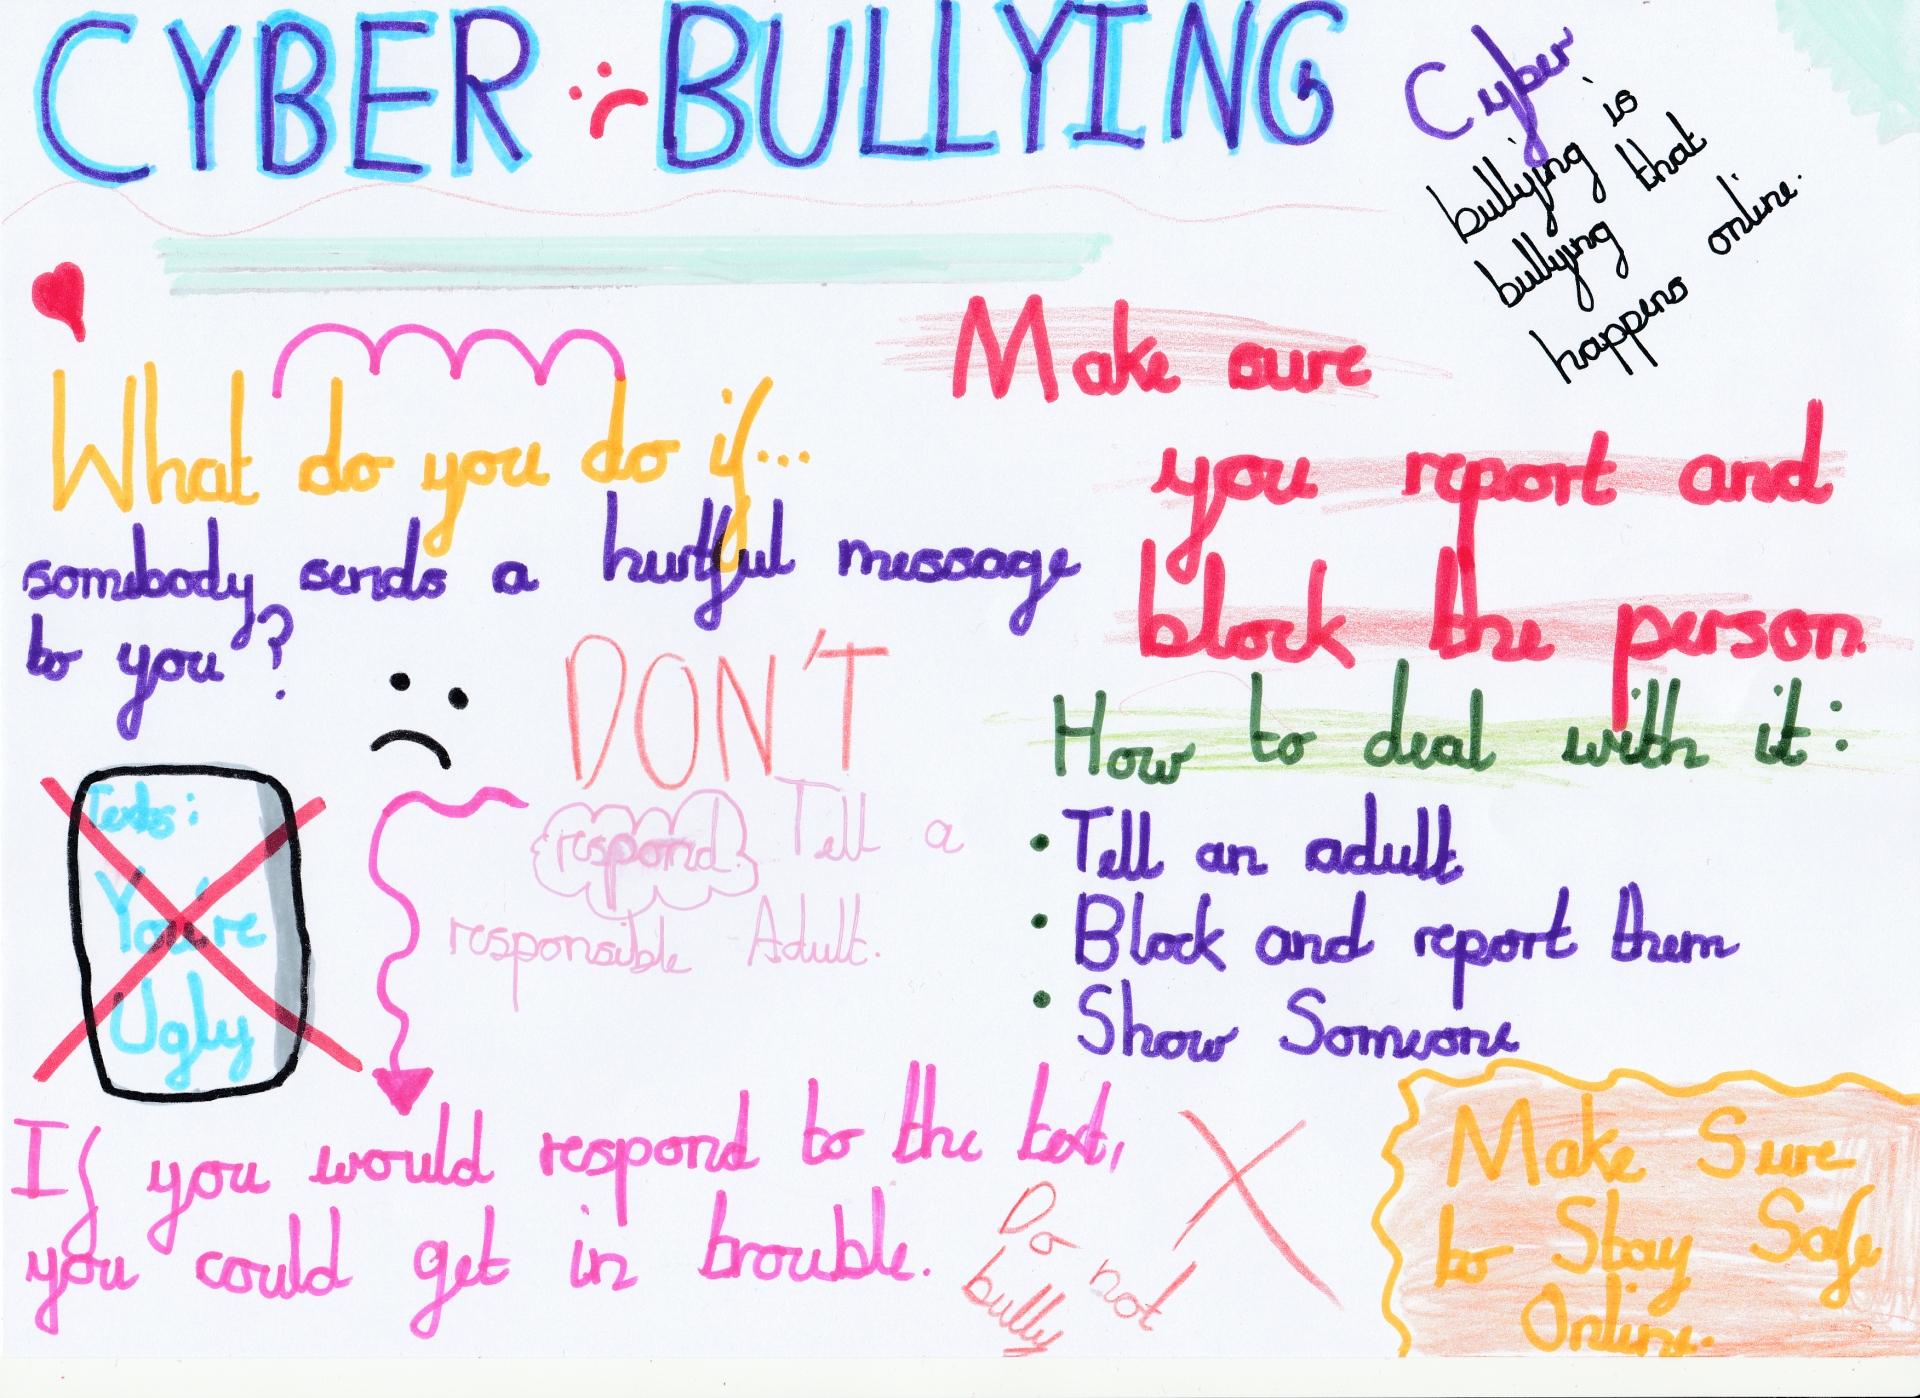 CYBER BULLYING
Cyber
bullying is
bullying that
happens online.
What do you do if...
somebody sends a hurtful message
to you?
Make sure
you report and
block the person.
DON'T
respond. Tell a
responsible Adult.
Texts:
You're
Ugly
How to deal with it:
• Tell an adult
• Block and report them
• Show Someone
If you would respond to the text,
you could get in trouble.
Do not
bully
Make Sure
to Stay Safe
Online.